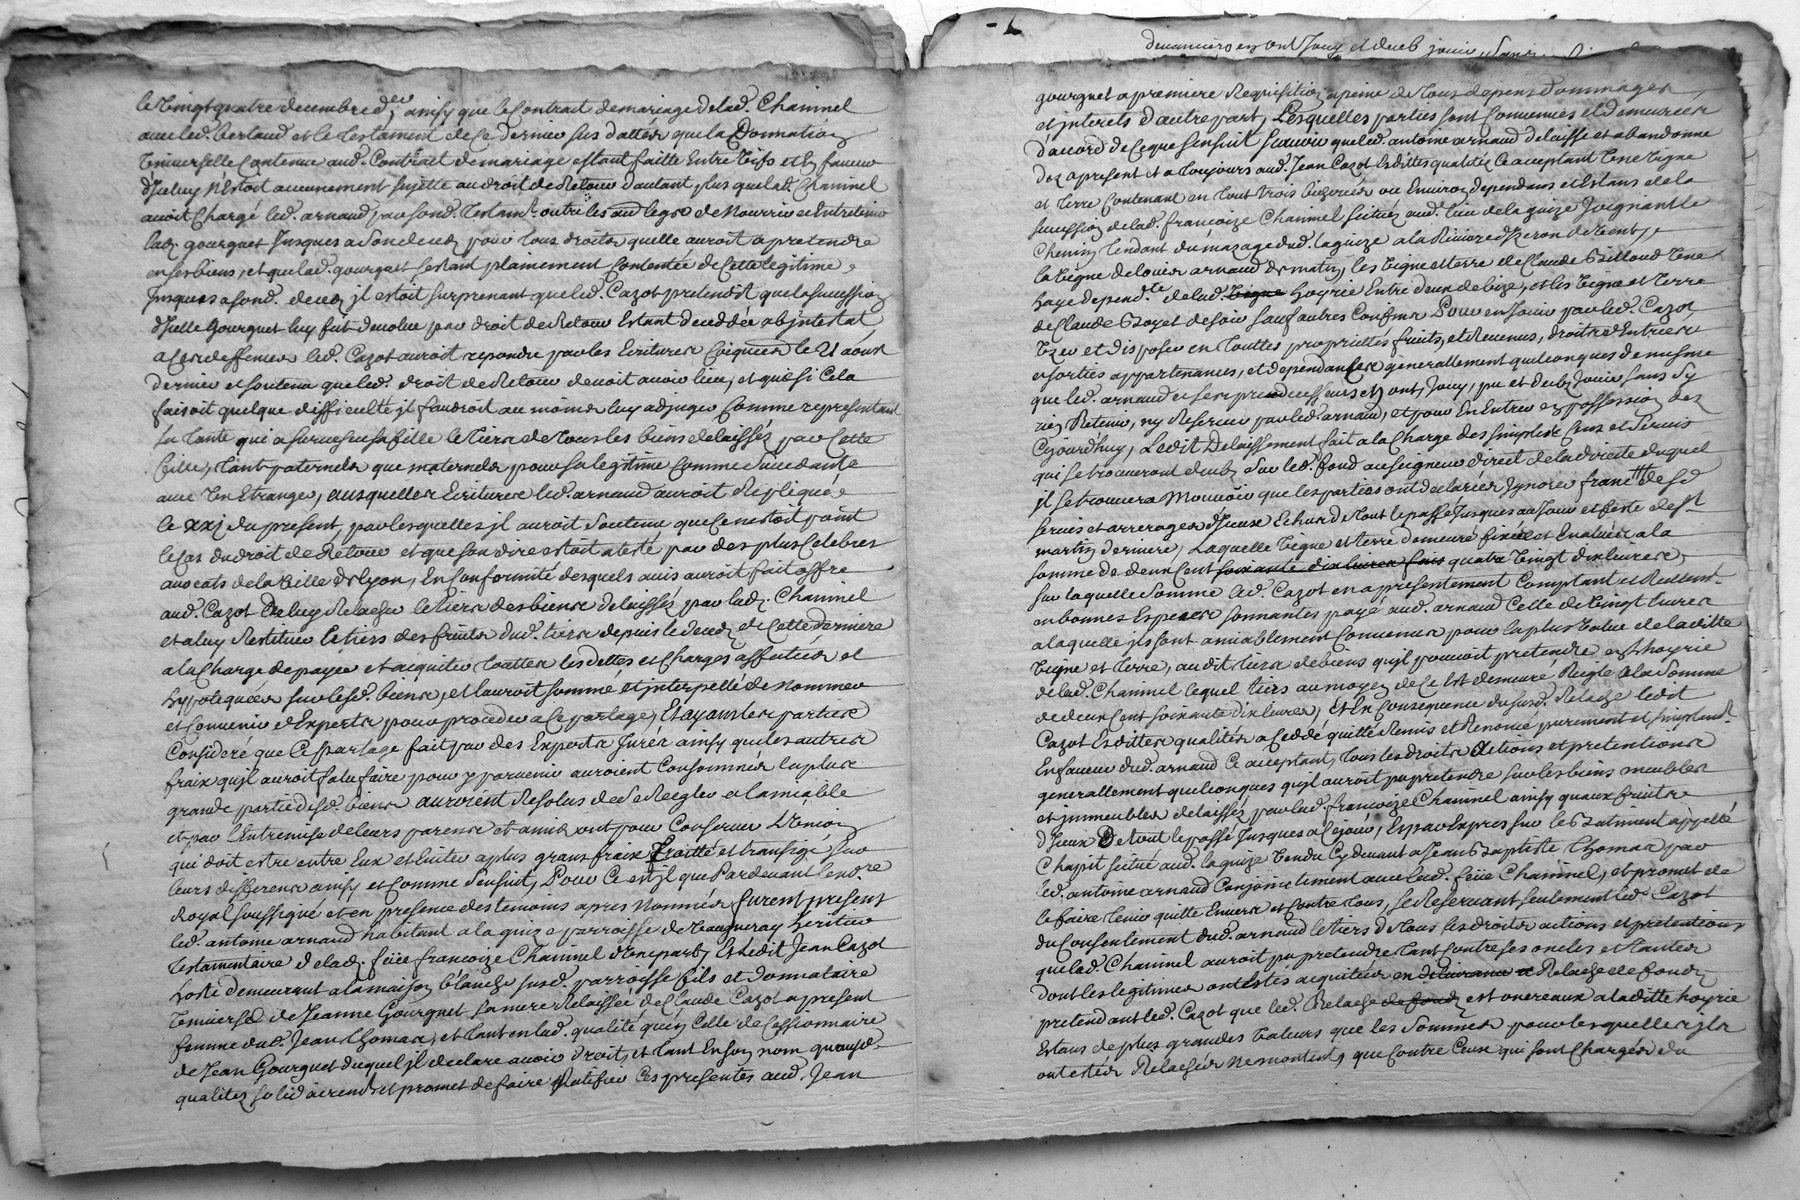 le vingt quatre decembre der, ainsy que le Contrait de mariage de lad. Chaninel
avec led. bertaud et le testament de ce dernier sus datter que la Donnation
Universelle Contenue aud. Contrait de mariage estant faitte Entre vifs et En faveur
d'Iceluy n'Estoit aucunement sujette au droit de Retour d'autant plus que lad. Chaninel
avoit Chargé led. arnaud, par sond. testamt. outre les aud legs de Nourrir et Entretenir
lad. gourguet Jusques a son deced, pour tous droits quelle auroit a pretendre
en ses biens, et que lad. gourguet s'estant plainement Contentée de Cette legitime
Jusques a sond. deced, jl estoit surprenant que led. Cazot pretendit que la succession
d'Icelle Gourguet luy fut devolue par droit de Retour Estant deceddée abjntestat,
a Ces deffences led. Cazot auroit repondu par les Ecritures Coignées le 21 aoust
dernier et soutenu que led. droit de Retour devoit avoir lieu, et que si Cela
faisoit quelque difficulté jl faudroit au moins luy adjuger Comme representant
sa tante qui a survescu sa fille le tiers de tous les biens delaissés par Cette
fille, tant paternels que maternels pour sa legitime Comme succedante
avec Un Etranger, ausquelles Ecritures led. arnaud auroit Repliqué
le xxj du present, par lesquelles jl auroit soutenu que Ce nestoit point
le Cas du droit de Retour et que son dire estoit atesté par des plus Celebres
avocats de la Ville de lyon, En Conformité desquels avis auroit fait offre
aud. Cazot de luy Relacher le tiers des biens delaissés par lad. Chaninel
et a luy Restituer le tiers des fruits dud. tiers depuis le deced de Cette derniere
a la Charge de payer et acquiter touttes les dettes et Charges affectées et
hypotequées sur lesd. biens, et l'auroit sommé et jnterpellé de Nommer
et Convenir d'Experts pour proceder a Ce partage, Et ayant les parties
Consideré que Ce partage fait par des Experts Jurés ainsy que les autres
fraix quil auroit falu faire pour y parvenir auroient Consommés la plus
grande partie desd. biens auroient Resolus de se Regler a l'amiable
et par l'Entremise de leurs parens et amis ont pour Conserver L'Union
qui doit estre entre Eux et Eviter a plus grans fraix Traitté et transigé sur
leurs differens ainsy et Comme s'ensuit, Pour Ce est-jl que Pardevant le no.re
Royal soussigné et en presence des temoins apres Nommés furent present
led. antoine arnaud habitant a la guize parroisse de Vaugneray heritier
Testamentaire de lad. feüe francoize Chaninel d'Une part, Et ledit Jean Cazot
hoste demeurant a la maison blanche susd. parroisse fils et donnataire
Universel de Jeanne Gourguet sa mere Relaissée de Claude Cazot a present
femme dud. Jean thomas, et tant en lad. qualité qu'en Celle de Cessionnaire
de Jean Gourguet duquel jl declare avoir droit, et tant En son nom qu'ausd.
qualités solidairemt et promet de faire Ratifier Ces presentes aud. Jean
devanciers en ont Jouy et deub jouir
gourguet a premiere Requisition a peine de tous depens Dommages
et jnterets d'autre part, Lesquelles parties sont Convenues et demeurées
d'acord de Ce que s'ensuit scavoir que led. antoine arnaud delaisse et abandonne
dez a present et a toujours aud. Jean Cazot Esdittes qualités Ce aceptant Une Vigne
et terre Contenant en tout trois bicherées ou Environ dependans et Estans de la
succession de lad. francoize Chaninel scituée aud. lieu de la guize Joignant le
Chemin tendant du mazage dud. la guize a la Riviere d'Yzeron de Vent,
la Vigne de Louis arnaud de matin, les Vigne et terre de Claude Billoud Une
haye depend.te de lad. Vigne hoyrie Entre deux de bize, et les Vigne et Terre
de Claude Boyet de soir sauf autres Confins Pour en Jouir par led. Cazot
Uzer et disposer en touttes proprietés fruits, et Revenus, droits d'Entrées
et sorties appartenances, et dependances generallement quelconques de mesme
que led. arnaud et ses predecesseurs en ont Jouy, pu et deub Jouir sans s'y
rien Retenir, ny Reserver par led. arnaud, et pour En Entrer en possession dez
Cejourdhuy, Ledit Delaissement fait a la Charge des simples Cens et servis
qui se trouveront deubs sur led. fond au seigneur direct de la directe duquel
jl se trouvera Mouvoir que les parties ont declarées Jgnorer franc ttt desd
servis et arrerages d'Iceux Echus de tout le passé Jusques au Jour et feste de St
martin derniere, Laquelle Vigne et terre demeure fixée et Evaluée a la
somme de deux Cent soixante dix livres Cais quatre Vingt dix livres,
sur laquelle somme led. Cazot en a presentement Comptant et Reellemt.
en bonnes Especes sonnantes payé aud. arnaud Celle de Vingt livres
a laquelle jls sont amiablement Convenus pour la plus Value de laditte
Vigne et terre, audit tiers de biens qu'jl pouvoit pretendre en l'hoyrie
de lad. Chaninel lequel tiers au moyen de Ce est demeuré Reigle a la somme
de deux Cent soixante dix livres, Et En Consequence du susd. Relache ledit
Cazot Esdittes qualités a Ceddé quitté Remis et Renoncé purement et simplemt.
En faveur dud. arnaud Ce aceptant, tous les droits Actions et pretentions
generallement quelconques qu'jl auroit pu pretendre sur les biens meubles
et jmmeubles delaissés par lad. francoize Chaninel ainsy quaux fruits
d'Iceux De tout le passé Jusques a Ce jour, Et par Expres sur le Batiment appellé
Chapit scitué aud. la guize Vendu Cy devant a Jean Baptiste thomas par
led. antoine arnaud Conjointement avec lad. feüe Chaninel, et promet de
le faire tenir quitte Envers et Contre tous, se Reservant seulement led. Cazot
du Consentement dud. arnaud le tiers de tous les droits actions et pretentions
que lad. Chaninel auroit pu pretendre tant Contre ses oncles et tantes
Dont les legitimes ont Estés acquitées en delivrance et Relache de fonds
pretendant led. Cazot que led. Relache de fonds est onereux a laditte hoyrie
Estans de plus grandes Valeurs que les sommes pour lesquelles jls
ont estés Relachés ne montent, que Contre Ceux qui sont Chargés du